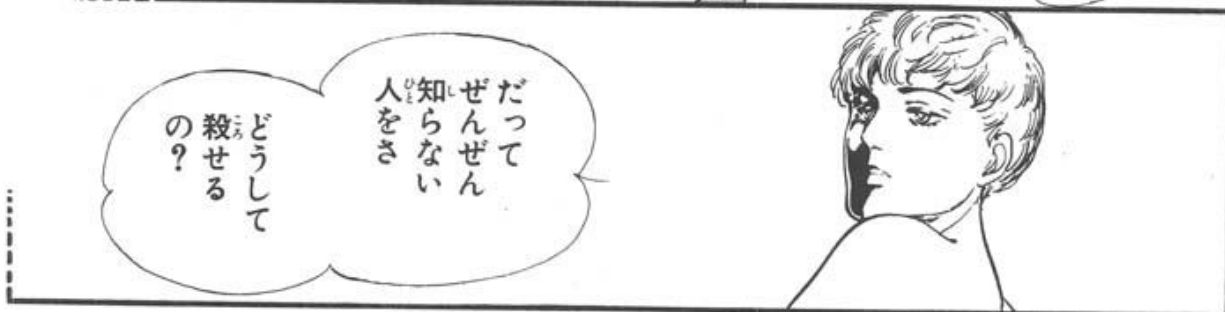 だって
ぜんぜん
知らない
人をさ
どうして
殺せる
の?